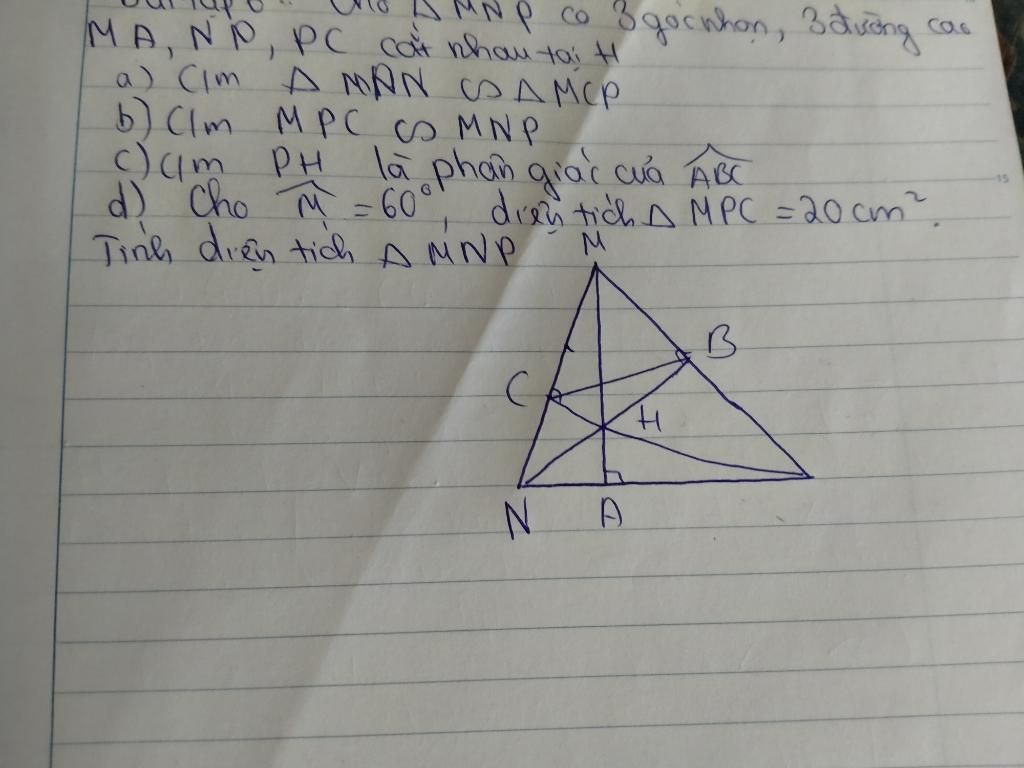 Bài tập 6: Cho △ MNP có 3 góc nhọn, 3 đường cao
MA, NP, PC cắt nhau tại H
a) C/m △ MAN ∽ △ MCP
b) C/m MPC ∽ MNP
c) C/m PH là phân giác của \widehat{ABC}
d) Cho \widehat{M} = 60°, diện tích △ MPC = 20 cm².
Tính diện tích △ MNP
M
B
C
H
N A